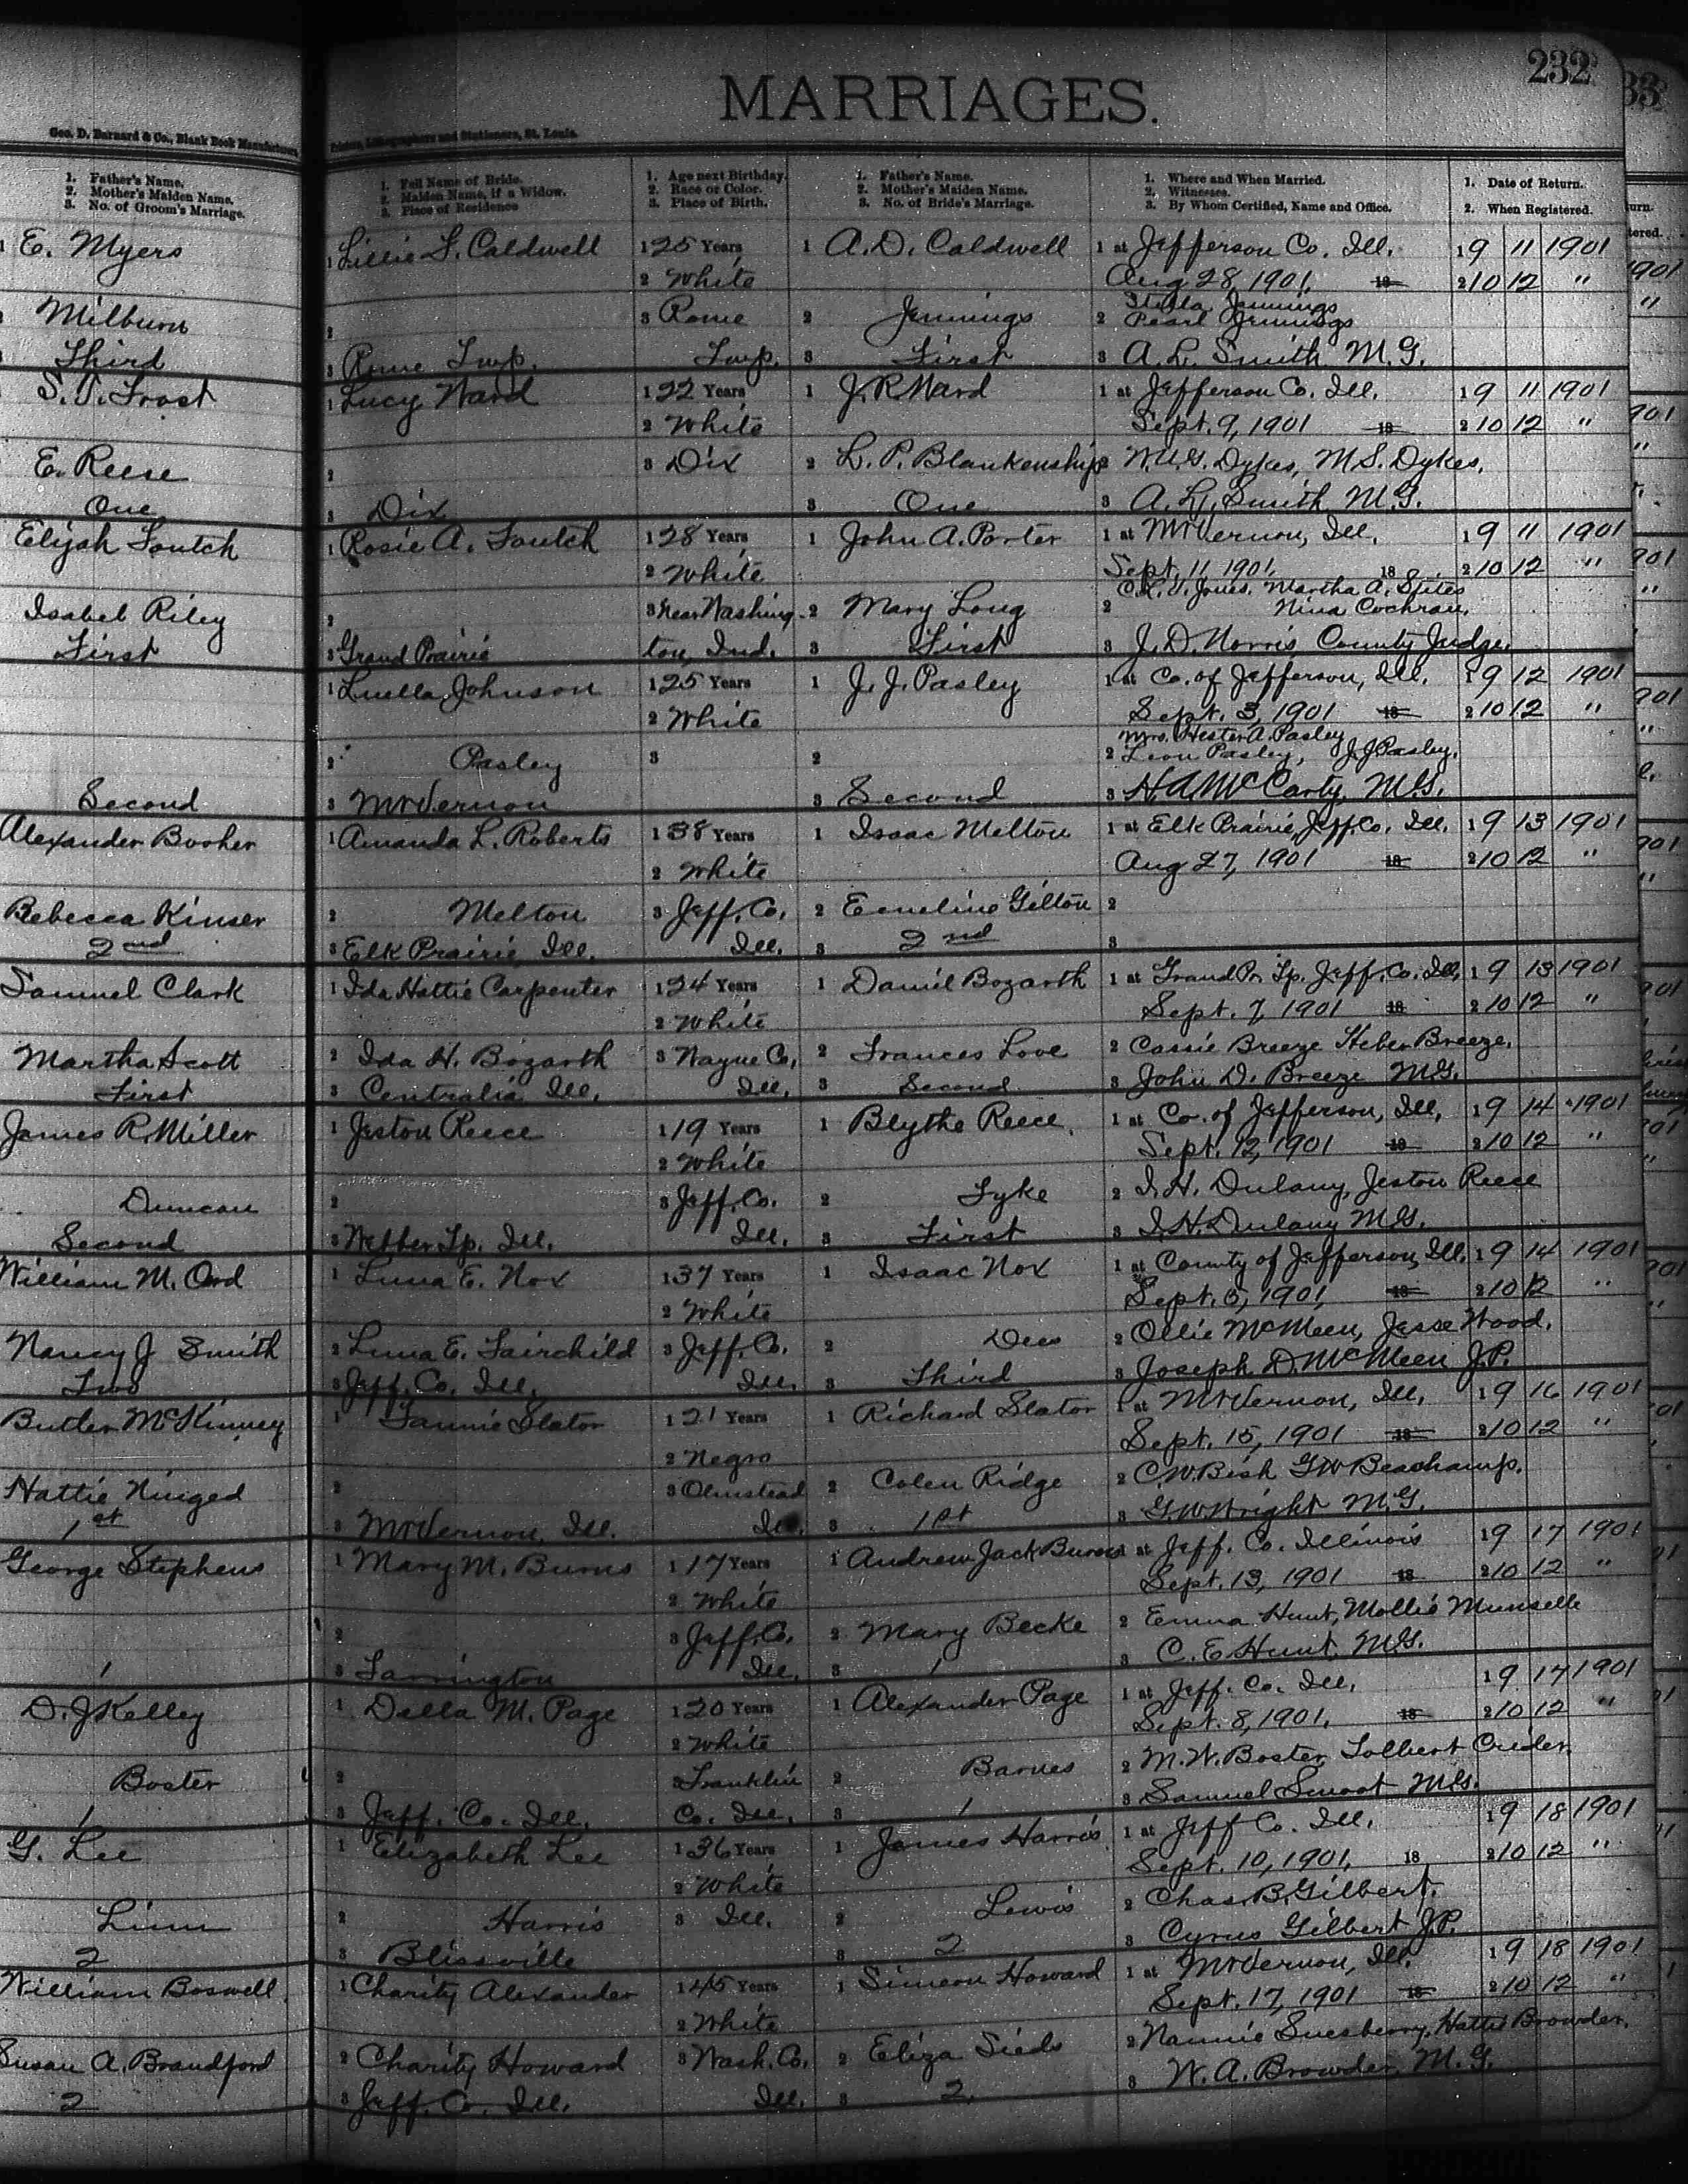 232
MARRIAGES.
Geo. D. Barnard & Co., Blank Book Manufacturers, Printers, Lithographers and Stationers, St. Louis.
1. Father's Name.
2. Mother's Maiden Name.
3. No. of Groom's Marriage.
1. Full Name of Bride.
2. Maiden Name, if a Widow.
3. Place of Residence
1. Age next Birthday.
2. Race or Color.
3. Place of Birth.
1. Father's Name.
2. Mother's Maiden Name.
3. No. of Bride's Marriage.
1. Where and When Married.
2. Witnesses.
3. By Whom Certified, Name and Office.
1. Date of Return.
2. When Registered.
1 E. Myers 1 Lillie L. Caldwell 1 25 Years 1 A. D. Caldwell 1 at Jefferson Co. Ill. 1 9 11 1901
2 White Aug 28, 1901. 18 2 10 12 "
Milburn 2 3 Rome 2 Jennings 2 Stella Jennings
Pearl Jennings
Third 3 Rome Twp. Twp. 3 First 3 A. L. Smith M.G.
S. T. Frost 1 Lucy Ward 1 22 Years 1 J. R Ward 1 at Jefferson Co. Ill. 1 9 11 1901
2 White Sept. 9, 1901 18 2 10 12 "
E. Reese 2 3 Dix 2 L. P. Blankenship 2 W. U. G. Dykes, M. S. Dykes.
One 3 Dix 3 One 3 A. L. Smith M.G.
Elijah Foutch 1 Rosie A. Foutch 1 28 Years 1 John A. Porter 1 at Mt Vernon, Ill. 1 9 11 1901
2 White Sept. 11 1901, 18 2 10 12 "
Isabel Riley 2 3 Near Washing- 2 Mary Long 2 Jones. Martha A. Stites
Nina Cochran.
First 3 Grand Prairie ton, Ind. 3 First 3 J. D. Norris County Judge.
1 Luella Johnson 1 25 Years 1 J. J. Pasley 1 at Co. of Jefferson, Ill. 1 9 12 1901
2 White Sept. 3, 1901 18 2 10 12 "
2 Pasley 3 2 Mrs. Hester A. Pasley
2 Leon Pasley, J J Pasley.
Second 3 Mt Vernon 3 Second 3 H. A. McCarty, M.G.
Alexander Booher 1 Amanda L. Roberts 1 38 Years 1 Isaac Melton 1 at Elk Prairie, Jeff. Co. Ill. 1 9 13 1901
2 White Aug 27, 1901 18 2 10 12 "
Rebecca Kinser 2 Melton 3 Jeff. Co. 2 Emeline Gilton 2
2nd 3 Elk Prairie, Ill. Ill. 3 2nd 3
Samuel Clark 1 Ida Hattie Carpenter 1 24 Years 1 Daniel Bozarth 1 at Grand Pr. Tp. Jeff. Co. Ill. 1 9 13 1901
2 White Sept. 7, 1901 18 2 10 12 "
Martha Scott 2 Ida H. Bozarth 3 Wayne Co. 2 Frances Love 2 Cassie Breeze Heber Breeze.
First 3 Centralia Ill. Ill. 3 Second 3 John D. Breeze M.G.
James R. Miller 1 Jeston Reece 1 19 Years 1 Blythe Reece. 1 at Co. of Jefferson, Ill, 1 9 14 1901
2 White Sept. 12, 1901 18 2 10 12 "
Duncan 2 3 Jeff. Co. 2 Fyke 2 I. H. Dulany, Jeston Reece
Second 3 Webber Tp. Ill. Ill. 3 First 3 I. H. Dulany M.G.
William M. Ord 1 Luna E. Nox 1 37 Years 1 Isaac Nox 1 at County of Jefferson, Ill. 1 9 14 1901
2 White Sept. 5, 1901, 18 2 10 12 "
Nancy J Smith 2 Luna E. Fairchild 3 Jeff. Co. 2 Dees 2 Ollie McMeen, Jesse Wood.
Two 3 Jeff. Co. Ill. Ill. 3 Third 3 Joseph D. McMeen J.P.
Butler McKinney 1 Fannie Slator 1 21 Years 1 Richard Slator 1 at Mt Vernon, Ill. 1 9 16 1901
2 Negro Sept. 15, 1901 18 2 10 12 "
Hattie Ninged 2 3 Olmstead 2 Colen Ridge 2 C. W. Bish G W Beachamp.
1st 3 Mt Vernon, Ill. Ill. 3 1st 3 G. W. Wright M.G.
George Stephens 1 Mary M. Burns 1 17 Years 1 Andrew Jack Burns 1 at Jeff. Co. Illinois 1 9 17 1901
2 White Sept. 13, 1901 18 2 10 12 "
2 3 Jeff. Co. 2 Mary Becke 2 Emma Hunt, Mollie Munselle
1 3 Farrington Ill. 3 1 3 C. E. Hunt, M.G.
D. J Kelley 1 Della M. Page 1 20 Years 1 Alexander Page 1 at Jeff. Co. Ill. 1 9 17 1901
2 White Sept. 8, 1901. 18 2 10 12 "
Boster 2 3 Franklin 2 Barnes 2 M. W. Boster, Tolbert Crider.
1 3 Jeff. Co. Ill. Co. Ill. 3 1 3 Samuel Smoot M.G.
G. Lee 1 Elizabeth Lee 1 36 Years 1 James Harris 1 at Jeff Co. Ill. 1 9 18 1901
2 White Sept. 10, 1901. 18 2 10 12 "
Linn 2 Harris 3 Ill. 2 Lewis 2 Chas. B. Gilbert.
2 3 Blissville 3 2 3 Cyrus Gilbert J.P.
William Boswell 1 Charity Alexander 1 45 Years 1 Simeon Howard 1 at Mt Vernon, Ill. 1 9 18 1901
2 White Sept. 17, 1901 18 2 10 12 "
Susan A. Brandford 2 Charity Howard 3 Wash. Co. 2 Eliza Sieds 2 Nannie Suesberry, Hattie Browder.
2 3 Jeff. Co. Ill. Ill. 3 2. 3 W. A. Browder, M.G.